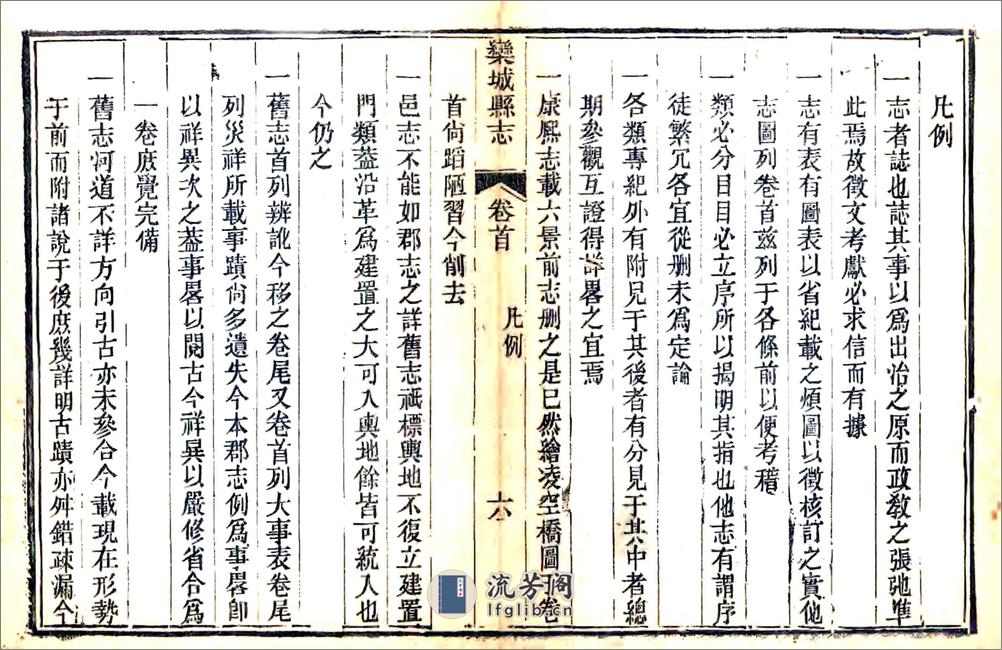 凡例
一志者誌也誌其事以爲出治之原而政教之張弛準
此焉故徵文考獻必求信而有據
一志有表有圖表以省紀載之煩圖以徵核訂之實他
志圖列卷首兹列于各條前以便考稽
一類必分目目必立序所以揭明其指也他志有謂序
徒繁冗各宜從刪未爲定論
一各類專紀外有附見于其後者有分見于其中者總
期參觀互證得詳畧之宜焉
一康熙志載六景前志刪之是已然繪凌空橋圖于卷
欒城縣志
卷首
凡例
六
首尙蹈陋習今削去
一邑志不能如郡志之詳舊志祇標輿地不復立建置
門類葢沿革爲建置之大可入輿地餘皆可統入也
今仍之
一舊志首列辨訛今移之卷尾又卷首列大事表卷尾
列災祥所載事蹟尙多遺失今本郡志例爲事畧卽
以祥異次之葢事畧以閱古今祥異以嚴修省合爲
一卷庶覺完備
一舊志河道不詳方向引古亦未參合今載現在形勢
于前而附諸說于後庶幾詳明古蹟亦舛錯疎漏今
流芳阁
lfglib.cn